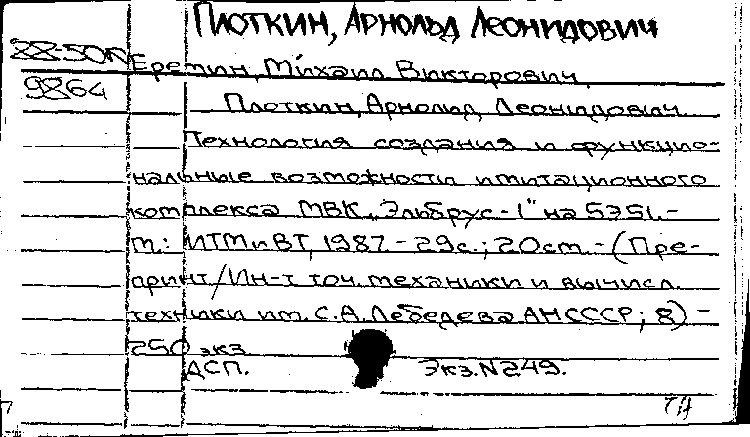 Плоткин, Арнольд Леонидович
Еремин, Михаил Викторович,
9864
Плоткин, Арнольд Леонидович
Технология создания и функцио-
нальные возможности имитационного
комплекса МВК „Эльбрус-1" на 5Э51.-
М.: ИТМиВТ, 1987.-29с.; 20см.-(Пре-
принт/Ин-т точ. механики и вычисл.
техники им. С.А. Лебедева АН СССР; 8)-
250 экз
ДСП. Экз.N249.